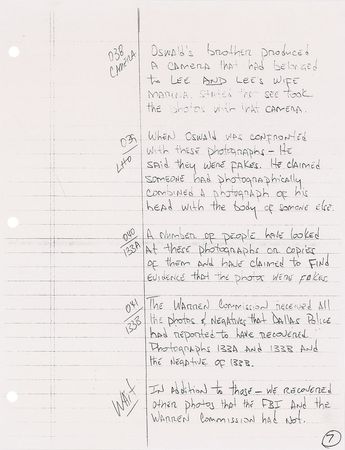 038
CAMERA
Oswald's brother produced
A CAMERA that had belonged
to LEE AND LEE'S WIFE
MARINA. STATED that SHE TOOK
the photos with that CAMERA.
039
LHO
WHEN OSWALD WAS CONFRONTED
WITH these photographs - He
SAID they WERE FAKES. HE CLAIMED
SOMEONE HAD photographically
COMBINED A photograph of his
HEAD WITH the BODY of SOMEONE ELSE.
040
133A
A NUMBER OF PEOPLE HAVE LOOKED
AT these photographs OR COPIES
of them AND HAVE CLAIMED to FIND
EVIDENCE that the photos WERE FAKES.
041
133B
The WARREN COMMISSION RECEIVED ALL
the photos & NEGATIVES that DALLAS POLICE
HAD REPORTED to HAVE RECOVERED.
Photographs 133A AND 133B AND
the NEGATIVE OF 133B.
WAIT
IN ADDITION to those - WE RECOVERED
other photos that the FBI AND the
WARREN COMMISSION HAD NOT.
7